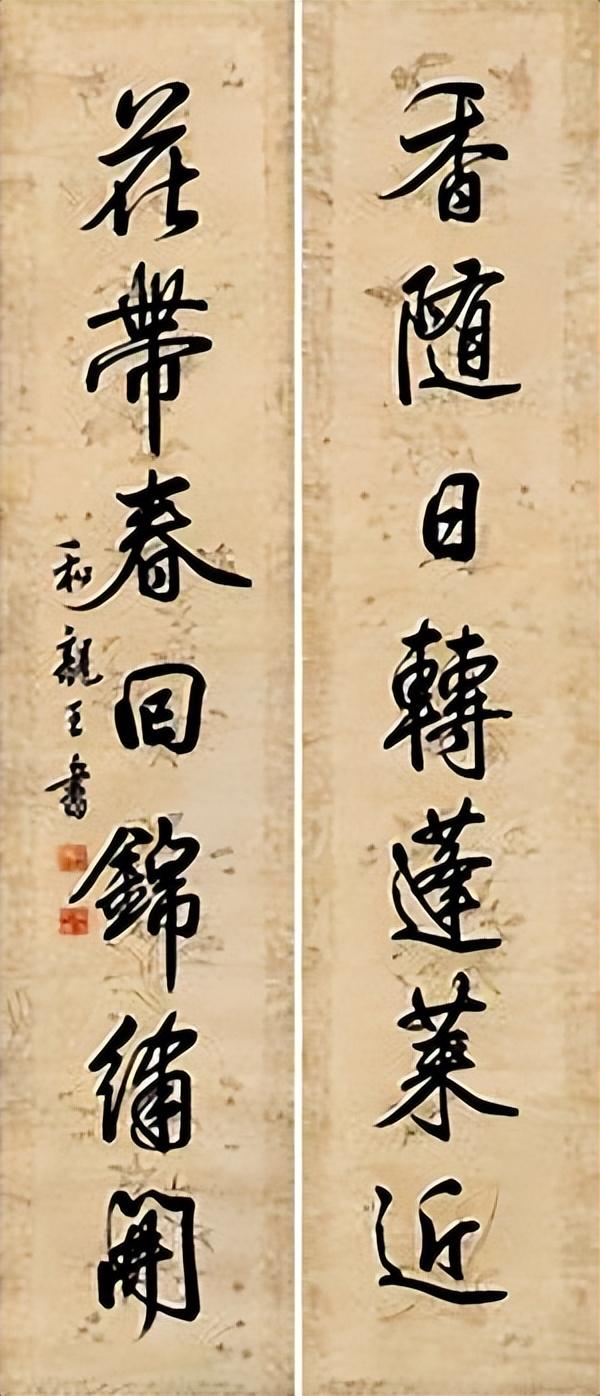 香随日轉蓬萊近
花帶春回錦繡開
和親王書